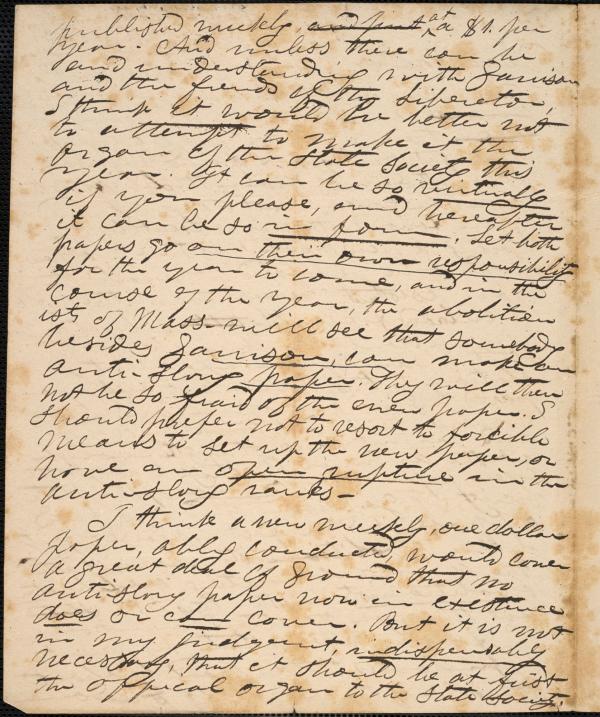 published weekly and sent at a $1. per
year. And unless there can be
and understanding with Garrison
and the friends of the Liberator,
I think it would be better not
to attempt to make it the
organ of the State Society this
year. It can be so virtually
if you please, and hereafter
it can be so in form. Let both
papers go on their own responsibility
for the year to come, and in the
course of the year, the abolition
ists of Mass. will see that somebody
besides Garrison, can make an
anti-slavy paper. They will then
not be so fraid of the new paper. I
should prefer not to resort to forcible
means to set up the new paper, or
have an open rupture in the
anti-slavy ranks—
I think a new weekly, one dollar
paper, ably conducted would cover
a great deal of ground that no
anti slavy paper now in existence
does or can cover. But it is not
in my judgment, indispensably
necessary, that it should be at first
the official organ to the State Society.